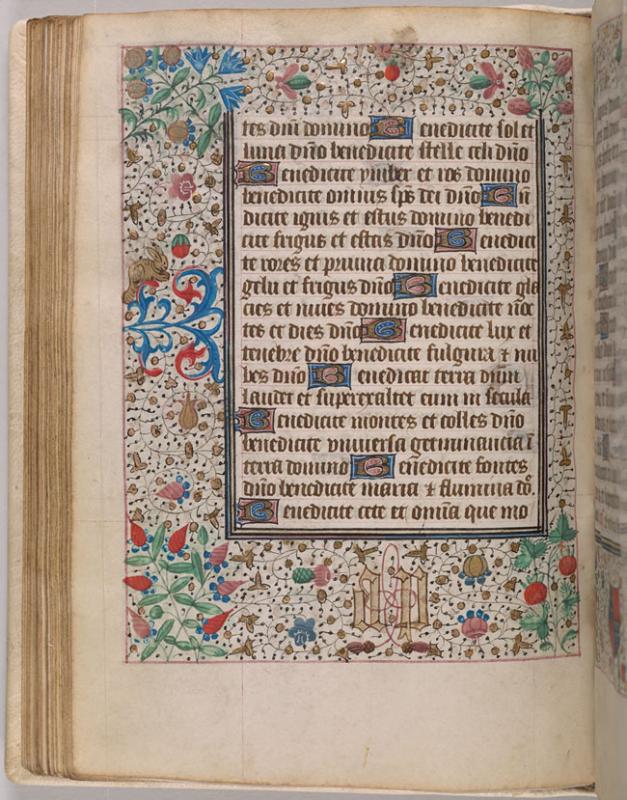 tes dñi domino B enedicite sol et
luna dño benedicite stelle celi dño
B enedicite ymber et ros domino
benedicite omnis sps dei dño B ñ
dicite ignis et estus domino benedi
cite frigus et estas dño B enedici
te rores et pruina domino benedicite
gelu et frigus dño B enedicite gla
cies et niues domino benedicite noc
tes et dies dño B enedicite lux et
tenebre dño benedicite fulgura et nu
bes dño B enedicat terra dñm
laudet et superexaltet eum in secula
B enedicite montes et colles dño
benedicite vniuersa germinancia ī
terra domino B enedicite fontes
dño benedicite maria et flumina dō.
B enedicite cete et omīa que mo